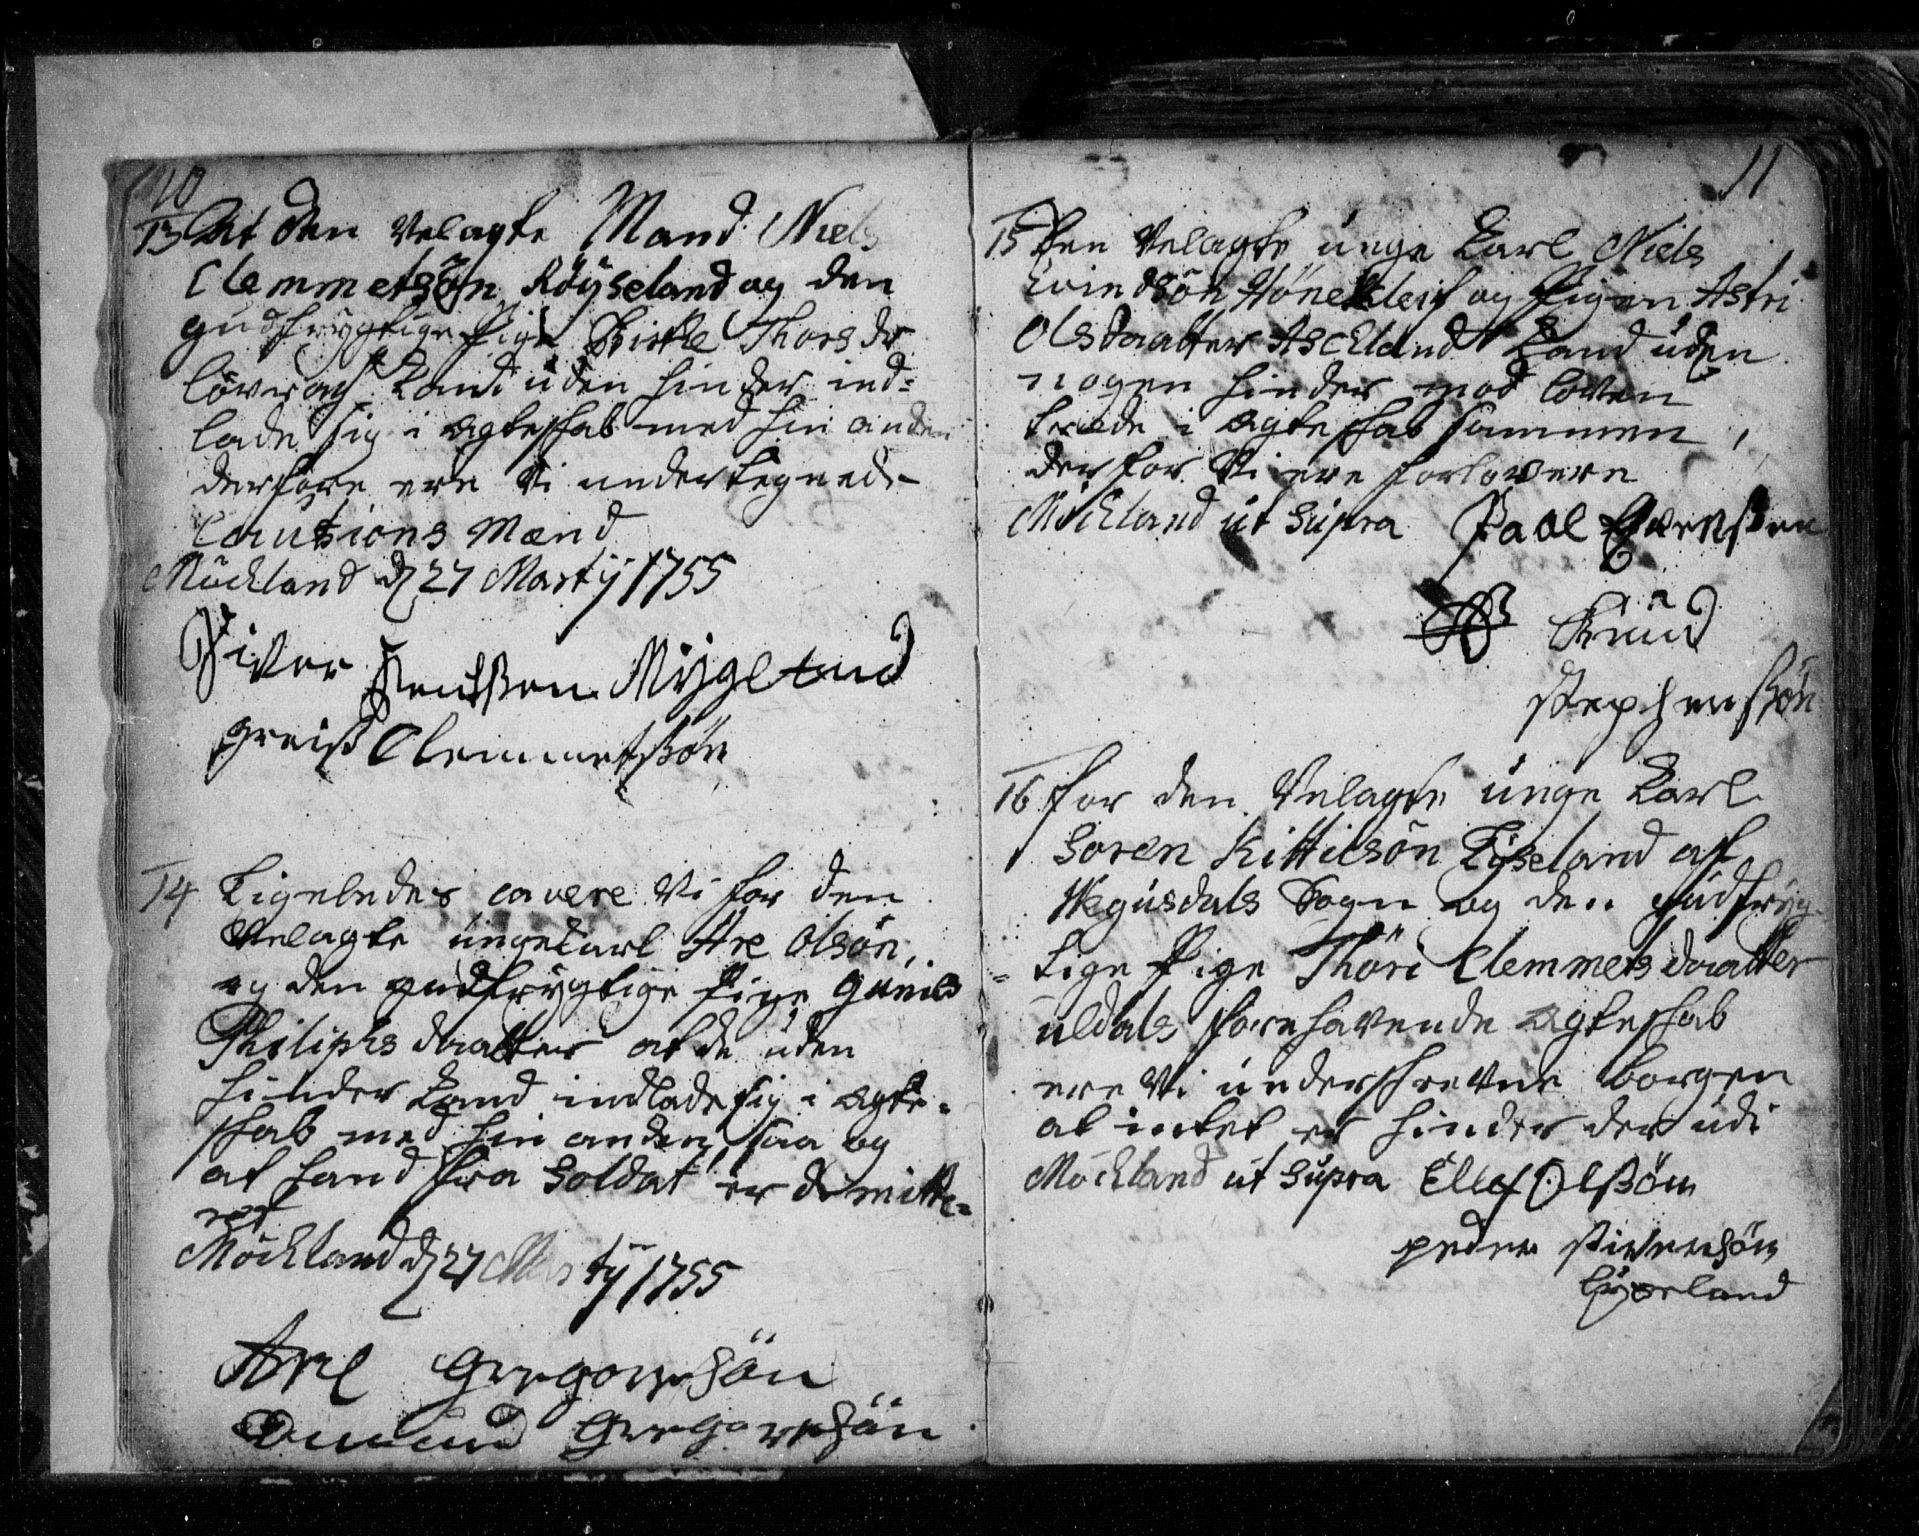 10
13 At den Velagte Mand Niels
Clemmetsøn Røÿseland og den
gudfrygtige Pige Birthe Thorsdr
kand uden hinder ind=
lade sig i ægteskab med hin anden
derfore ere Vi undertegnede
Cautions Mænd
Möckland d 27 Martÿ 1755
Siver Knudssen Mÿgland
greiss Clemmetssøn
14 Ligeledes cavere Vi for den
Velagte unge Karl Are Olsøn,
og den gudfrygtige Pige Gunild
Philiphs daatter at de uden
hinder kand indlade sig i ægte=
skab med hin anden, saa og
at hand fra Soldat er dimitte=
ret
Möckland d 27 Martÿ 1755
Arel Gregorsøn
Omund Gregorsøn
11
15 Den Velagte unge Karl Niels
Evindsøn Hønekleif og Pigen Astri
Olsdaatter Aseland kand uden
nogen hinder mod loven
træde i ægteskab sammen,
derfor Vi ere forlovere
Möckland ut Supra Paal
Knud
Stephenssøn
16 For den Velagte unge Karl
Soren Kittilsøn Lÿseland af
Wegusdals Sogn og den gudfrÿg=
tige Pige Thøri Clemmets daatter
Uldals forehavende ægteskab
ere Vi underskrevne borgen
at intet er hinder der udi
Möckland ut Supra Ellef Olssøn
peder Siversøn
Lÿseland